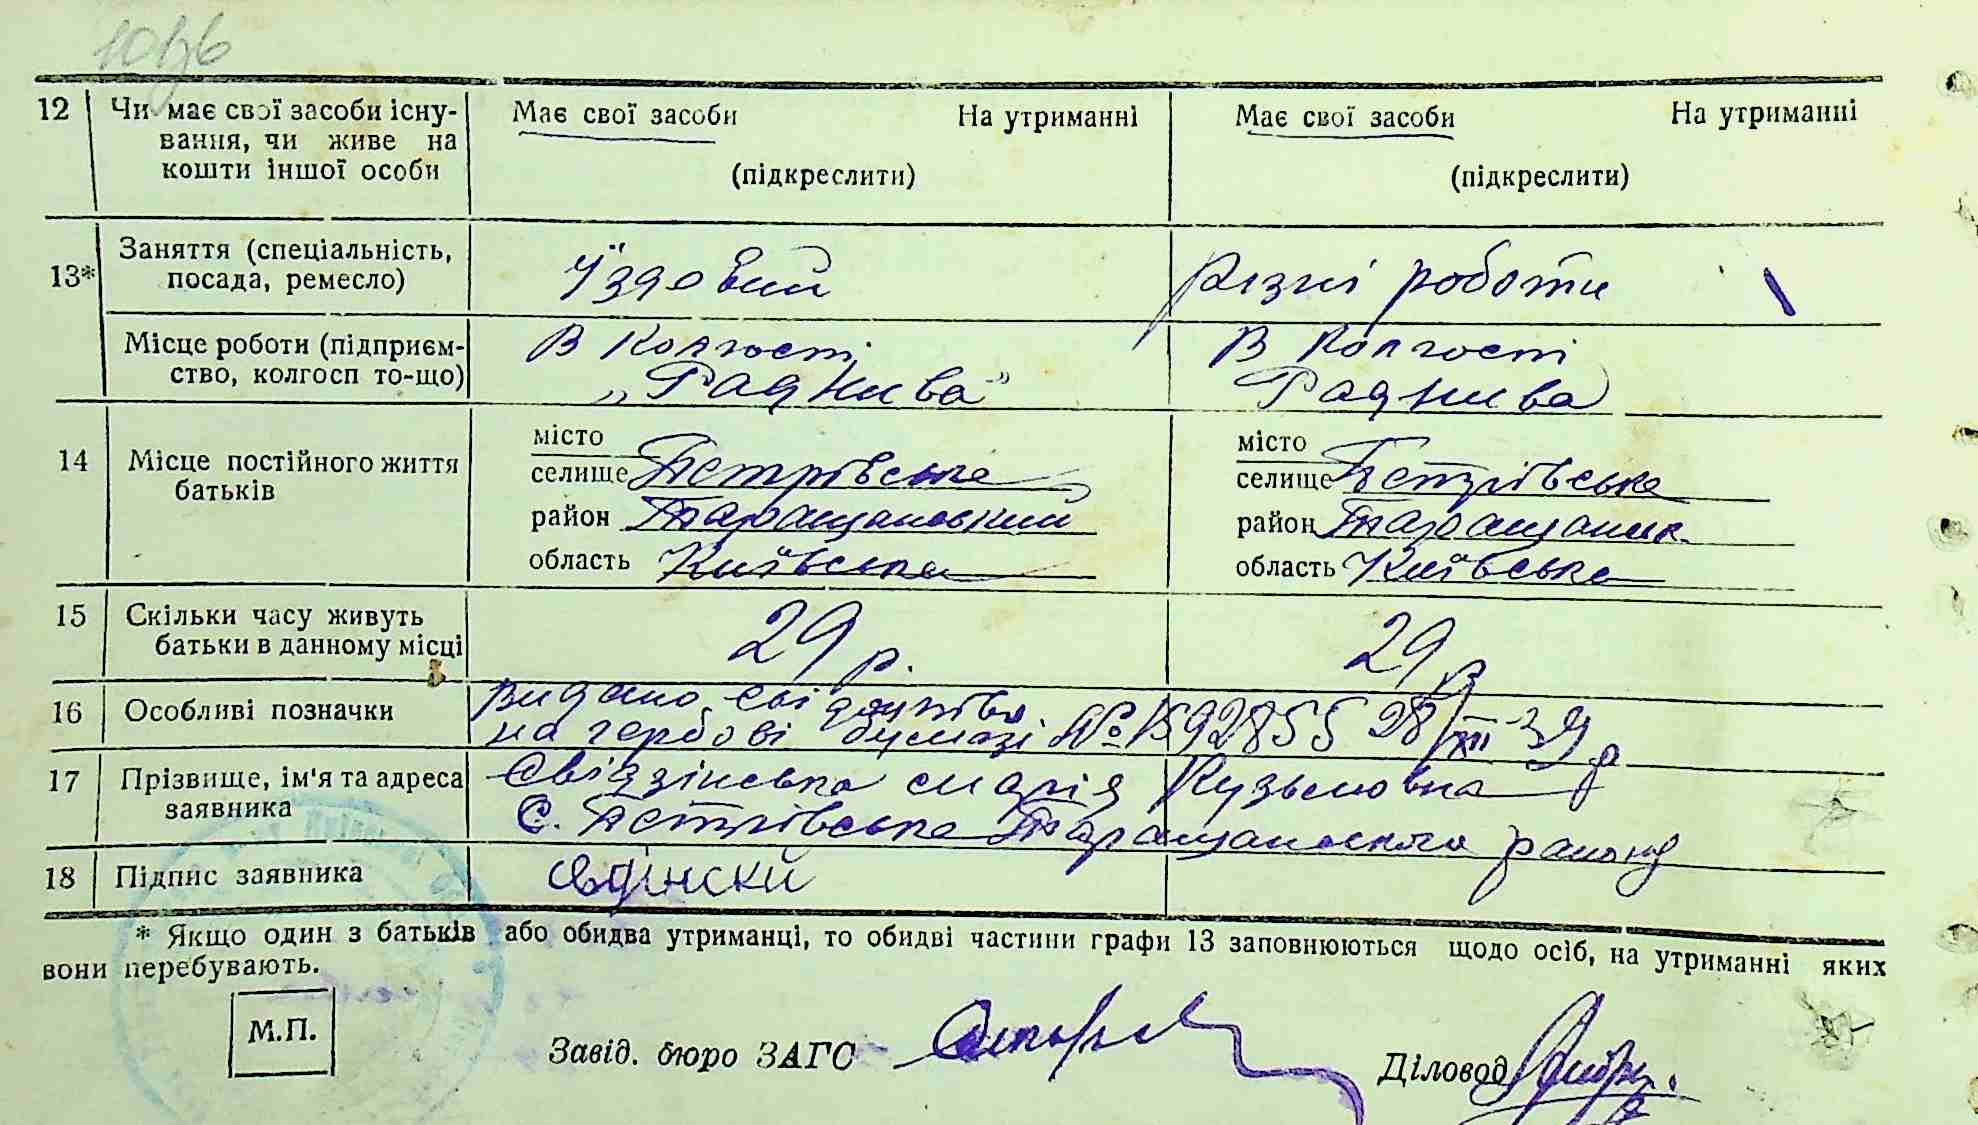 12 Чи має свої засоби існу- Має свої засоби На утриманні Має свої засоби На утриманні
вання, чи живе на
кошти іншої особи (підкреслити) (підкреслити)
13* Заняття (спеціальність, Їздовий Різні роботи
посада, ремесло)
Місце роботи (підприєм- В Колгоспі В Колгоспі
ство, колгосп то-що) „Рад Нива" Рад Нива
14 Місце постійного життя місто місто
батьків селище Петрівське селище Петрівське
район Таращанський район Таращанськ.
область Київська область Київська
15 Скільки часу живуть 29 р. 29 р
батьки в данному місці
16 Особливі позначки Видано свідоцтво
на гербові бумазі № 1592855 28/XII-39 р
17 Прізвище, ім'я та адреса Свідзінська Марія Кузьмовна
заявника С. Петрівське Таращанського району
18 Підпис заявника
* Якщо один з батьків або обидва утриманці, то обидві частини графи 13 заповнюються щодо осіб, на утриманні яких
вони перебувають.
М.П.
Завід. бюро ЗАГС Діловод